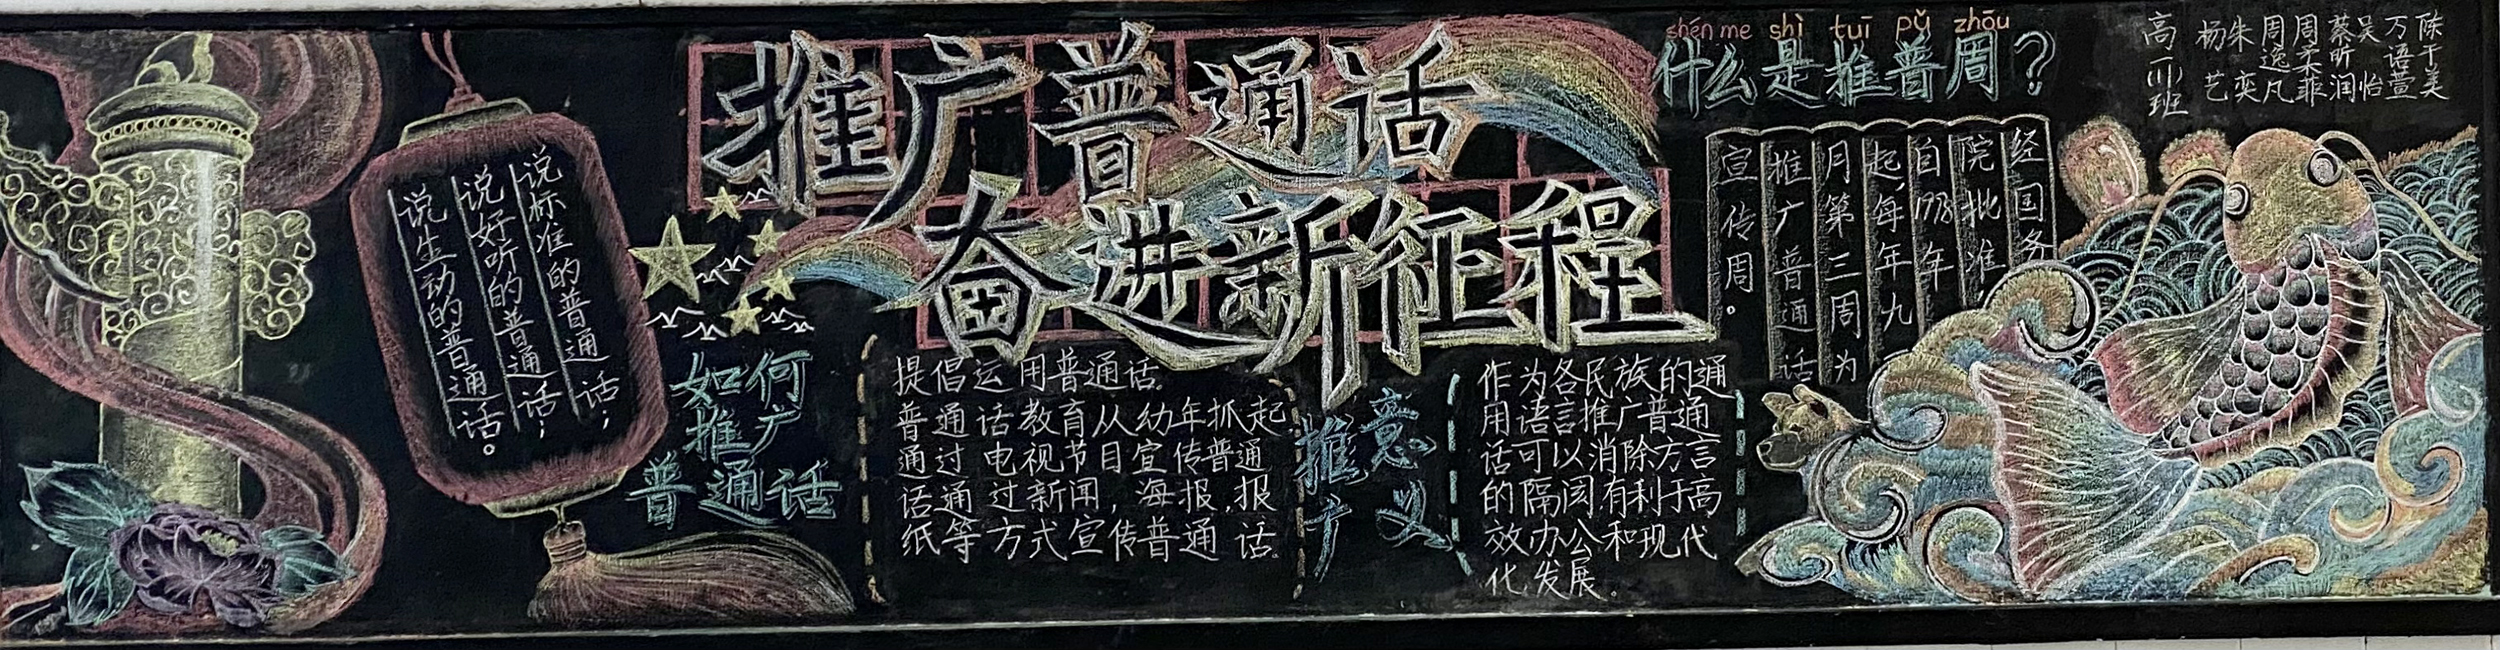 推广普通话
奋进新征程
说标准的普通话；
说好听的普通话；
说生动的普通话。
如何
推广
普通话
提倡运用普通话.
普通话教育从幼年抓起
通过电视节目宣传普通
话通过新闻,海报,报
纸等方式宣传普通话.
推广
意义
作为各民族的通
用语言推广普通
话可以消除方言
的隔阂有利于高
效办公和现代
化发展.
shén me shì tuī pǔ zhōu
什么是推普周?
经国务
院批准
自1998年
起,每年九
月第三周为
推广普通话
宣传周。
高一(1)班
杨艺
朱奕
周逸凡
周柔菲
蔡昕润
吴怡
万语萱